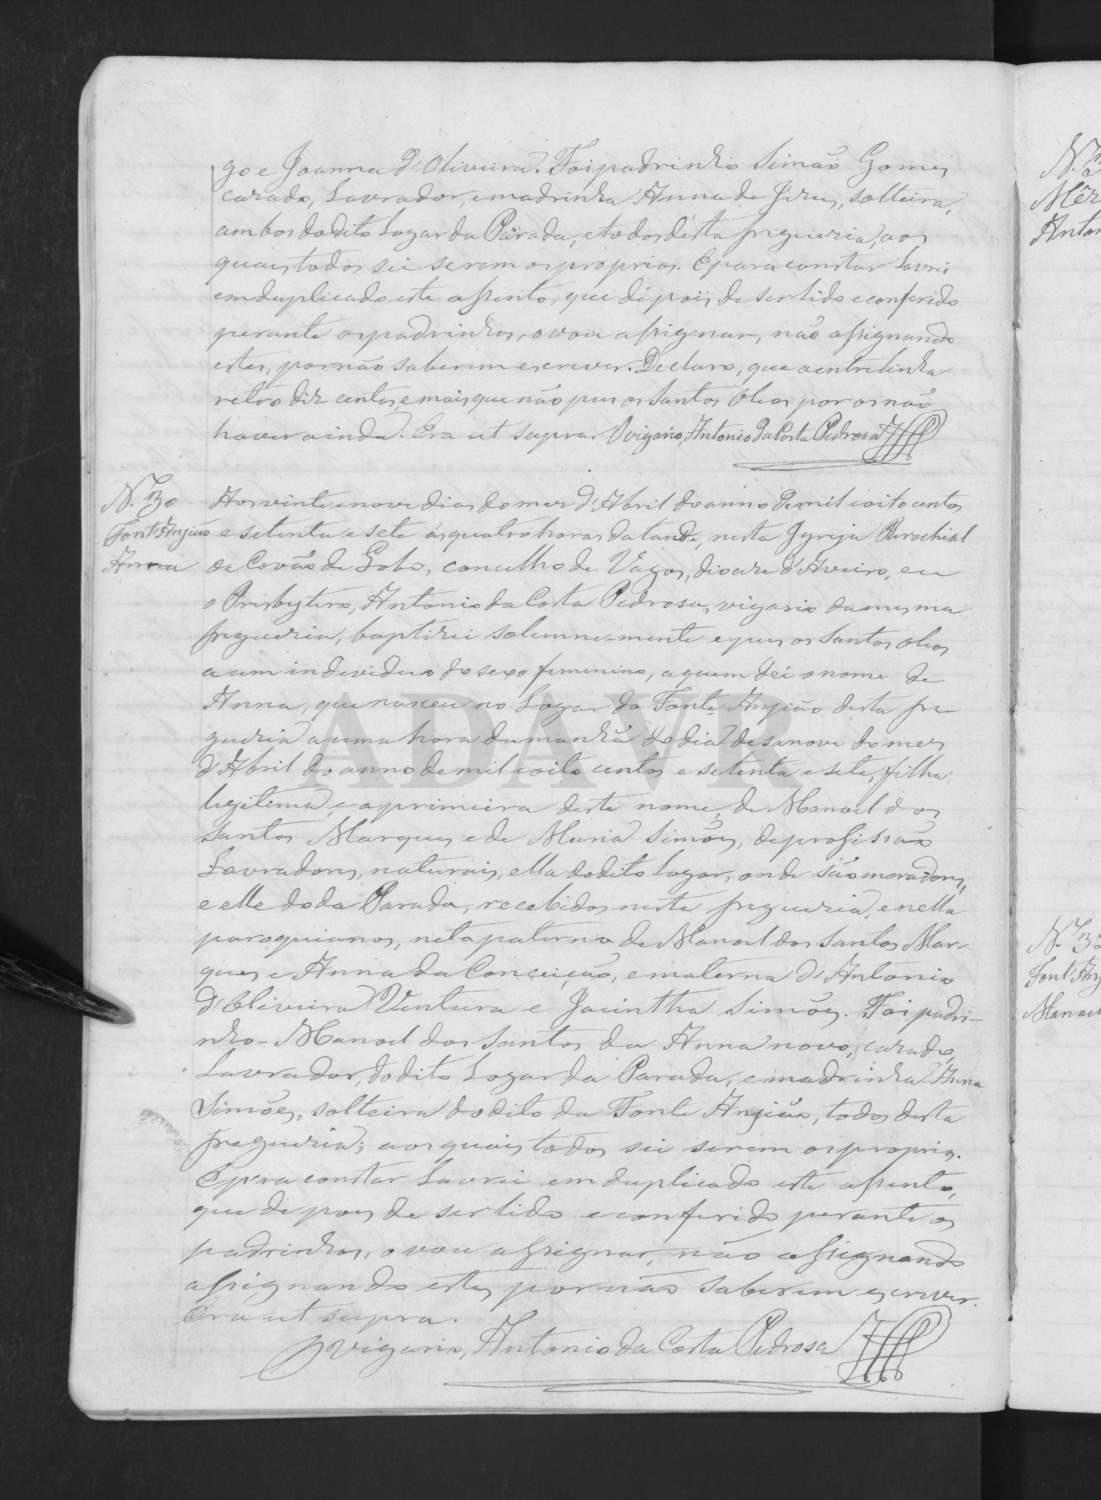 go e Joanna d'Oliveira. Foi padrinho Simão Gomes
casado, Lavrador, e madrinha Anna de Jesus, solteira,
ambos do dito Logar da Parada, e todos désta freguezia, aos
quaes todos sei serem os proprios. E para constar Lavrei
em duplicado este assento, que depois de ser lido e conferido
perante os padrinhos, o vou assignar, não assignando
estes, por não saberem escrever. Declaro, que a entrelinha
retro diz centos, e mais que não pus os Santos Oleos por os não
haver ainda. Era ut supra. O vigario, Antonio da Costa Pedrosa
N. 30
Font'Anjião
Anna
Aos vinte e nove dias do mes d'Abril do anno de mil e oito centos
e setenta e sete ás quatro horas da tarde, nesta Igreja Parochial
de Covão do Lobo, concelho de Vagos, diocese d'Aveiro, eu
o Presbytero, Antonio da Costa Pedrosa, vigario da mesma
freguezia, baptizei solemne-mente e pus os Santos Oleos
a um individuo do sexo femenino, a quem dei o nome de
Anna, que nasceu no Logar da Fonte Anjião desta fre
guezia a uma hora da manhã do dia desanove do mes
d'Abril do anno de mil e oito centos e setenta e sete, filha
legitima, e a primeira deste nome, de Manoel dos
Santos Marques e de Maria Simões, de profissão
Lavradores, naturais, ella do dito Logar, onde são moradores,
e elle do da Parada, recebidos nesta freguezia, e nella
paroquianos, neta paterna de Manoel dos Santos Mar-
ques e Anna da Conceição, e materna d'Antonio
d'Oliveira Ventura e Jacintha Simões. Foi padri-
nho - Manoel dos Santos da Anna novo, casado,
Lavrador, do dito Logar da Parada, e madrinha Anna
Simões, solteira do dito da Fonte Anjião, todos desta
freguezia; aos quais todos sei serem os proprios.
E para constar Lavrei em duplicado este assento,
que depois de ser lido e conferido perante os
padrinhos, o vou assignar, não assignando
assignando estes, por não saberem escrever.
Era ut supra.
O vigario, Antonio da Costa Pedrosa
ADAVR
N. 3
Font'Anj
Manoel